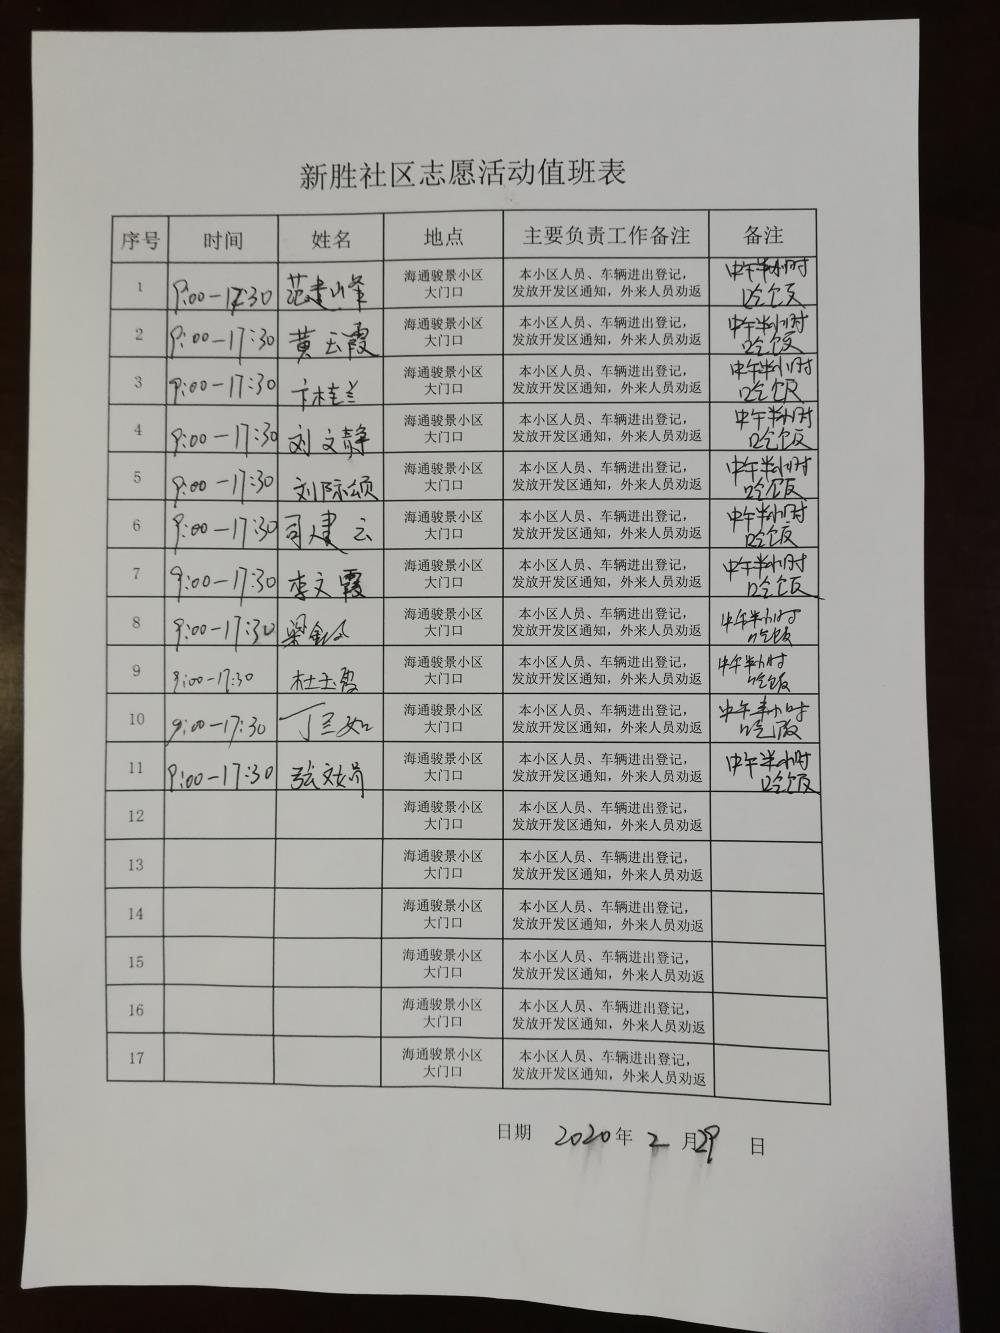 新胜社区志愿活动值班表
序号 时间 姓名 地点 主要负责工作备注 备注
1 9:00-17:30 范建峰 海通骏景小区 本小区人员、车辆进出登记, 中午半小时
大门口 发放开发区通知,外来人员劝返 吃饭
2 9:00-17:30 黄玉霞 海通骏景小区 本小区人员、车辆进出登记, 中午半小时
大门口 发放开发区通知,外来人员劝返 吃饭
3 9:00-17:30 卞桂兰 海通骏景小区 本小区人员、车辆进出登记, 中午半小时
大门口 发放开发区通知,外来人员劝返 吃饭
4 9:00-17:30 刘文静 海通骏景小区 本小区人员、车辆进出登记, 中午半小时
大门口 发放开发区通知,外来人员劝返 吃饭
5 9:00-17:30 刘际颂 海通骏景小区 本小区人员、车辆进出登记, 中午半小时
大门口 发放开发区通知,外来人员劝返 吃饭
6 9:00-17:30 司建云 海通骏景小区 本小区人员、车辆进出登记, 中午半小时
大门口 发放开发区通知,外来人员劝返 吃饭
7 9:00-17:30 李文霞 海通骏景小区 本小区人员、车辆进出登记, 中午半小时
大门口 发放开发区通知,外来人员劝返 吃饭
8 9:00-17:30 海通骏景小区 本小区人员、车辆进出登记, 中午半小时
大门口 发放开发区通知,外来人员劝返 吃饭
9 9:00-17:30 杜玉霞 海通骏景小区 本小区人员、车辆进出登记, 中午半小时
大门口 发放开发区通知,外来人员劝返 吃饭
10 9:00-17:30 丁兰如 海通骏景小区 本小区人员、车辆进出登记, 中午半小时
大门口 发放开发区通知,外来人员劝返 吃饭
11 9:00-17:30 海通骏景小区 本小区人员、车辆进出登记, 中午半小时
大门口 发放开发区通知,外来人员劝返 吃饭
12 海通骏景小区 本小区人员、车辆进出登记,
大门口 发放开发区通知,外来人员劝返
13 海通骏景小区 本小区人员、车辆进出登记,
大门口 发放开发区通知,外来人员劝返
14 海通骏景小区 本小区人员、车辆进出登记,
大门口 发放开发区通知,外来人员劝返
15 海通骏景小区 本小区人员、车辆进出登记,
大门口 发放开发区通知,外来人员劝返
16 海通骏景小区 本小区人员、车辆进出登记,
大门口 发放开发区通知,外来人员劝返
17 海通骏景小区 本小区人员、车辆进出登记,
大门口 发放开发区通知,外来人员劝返
日期 2020年 2 月29 日